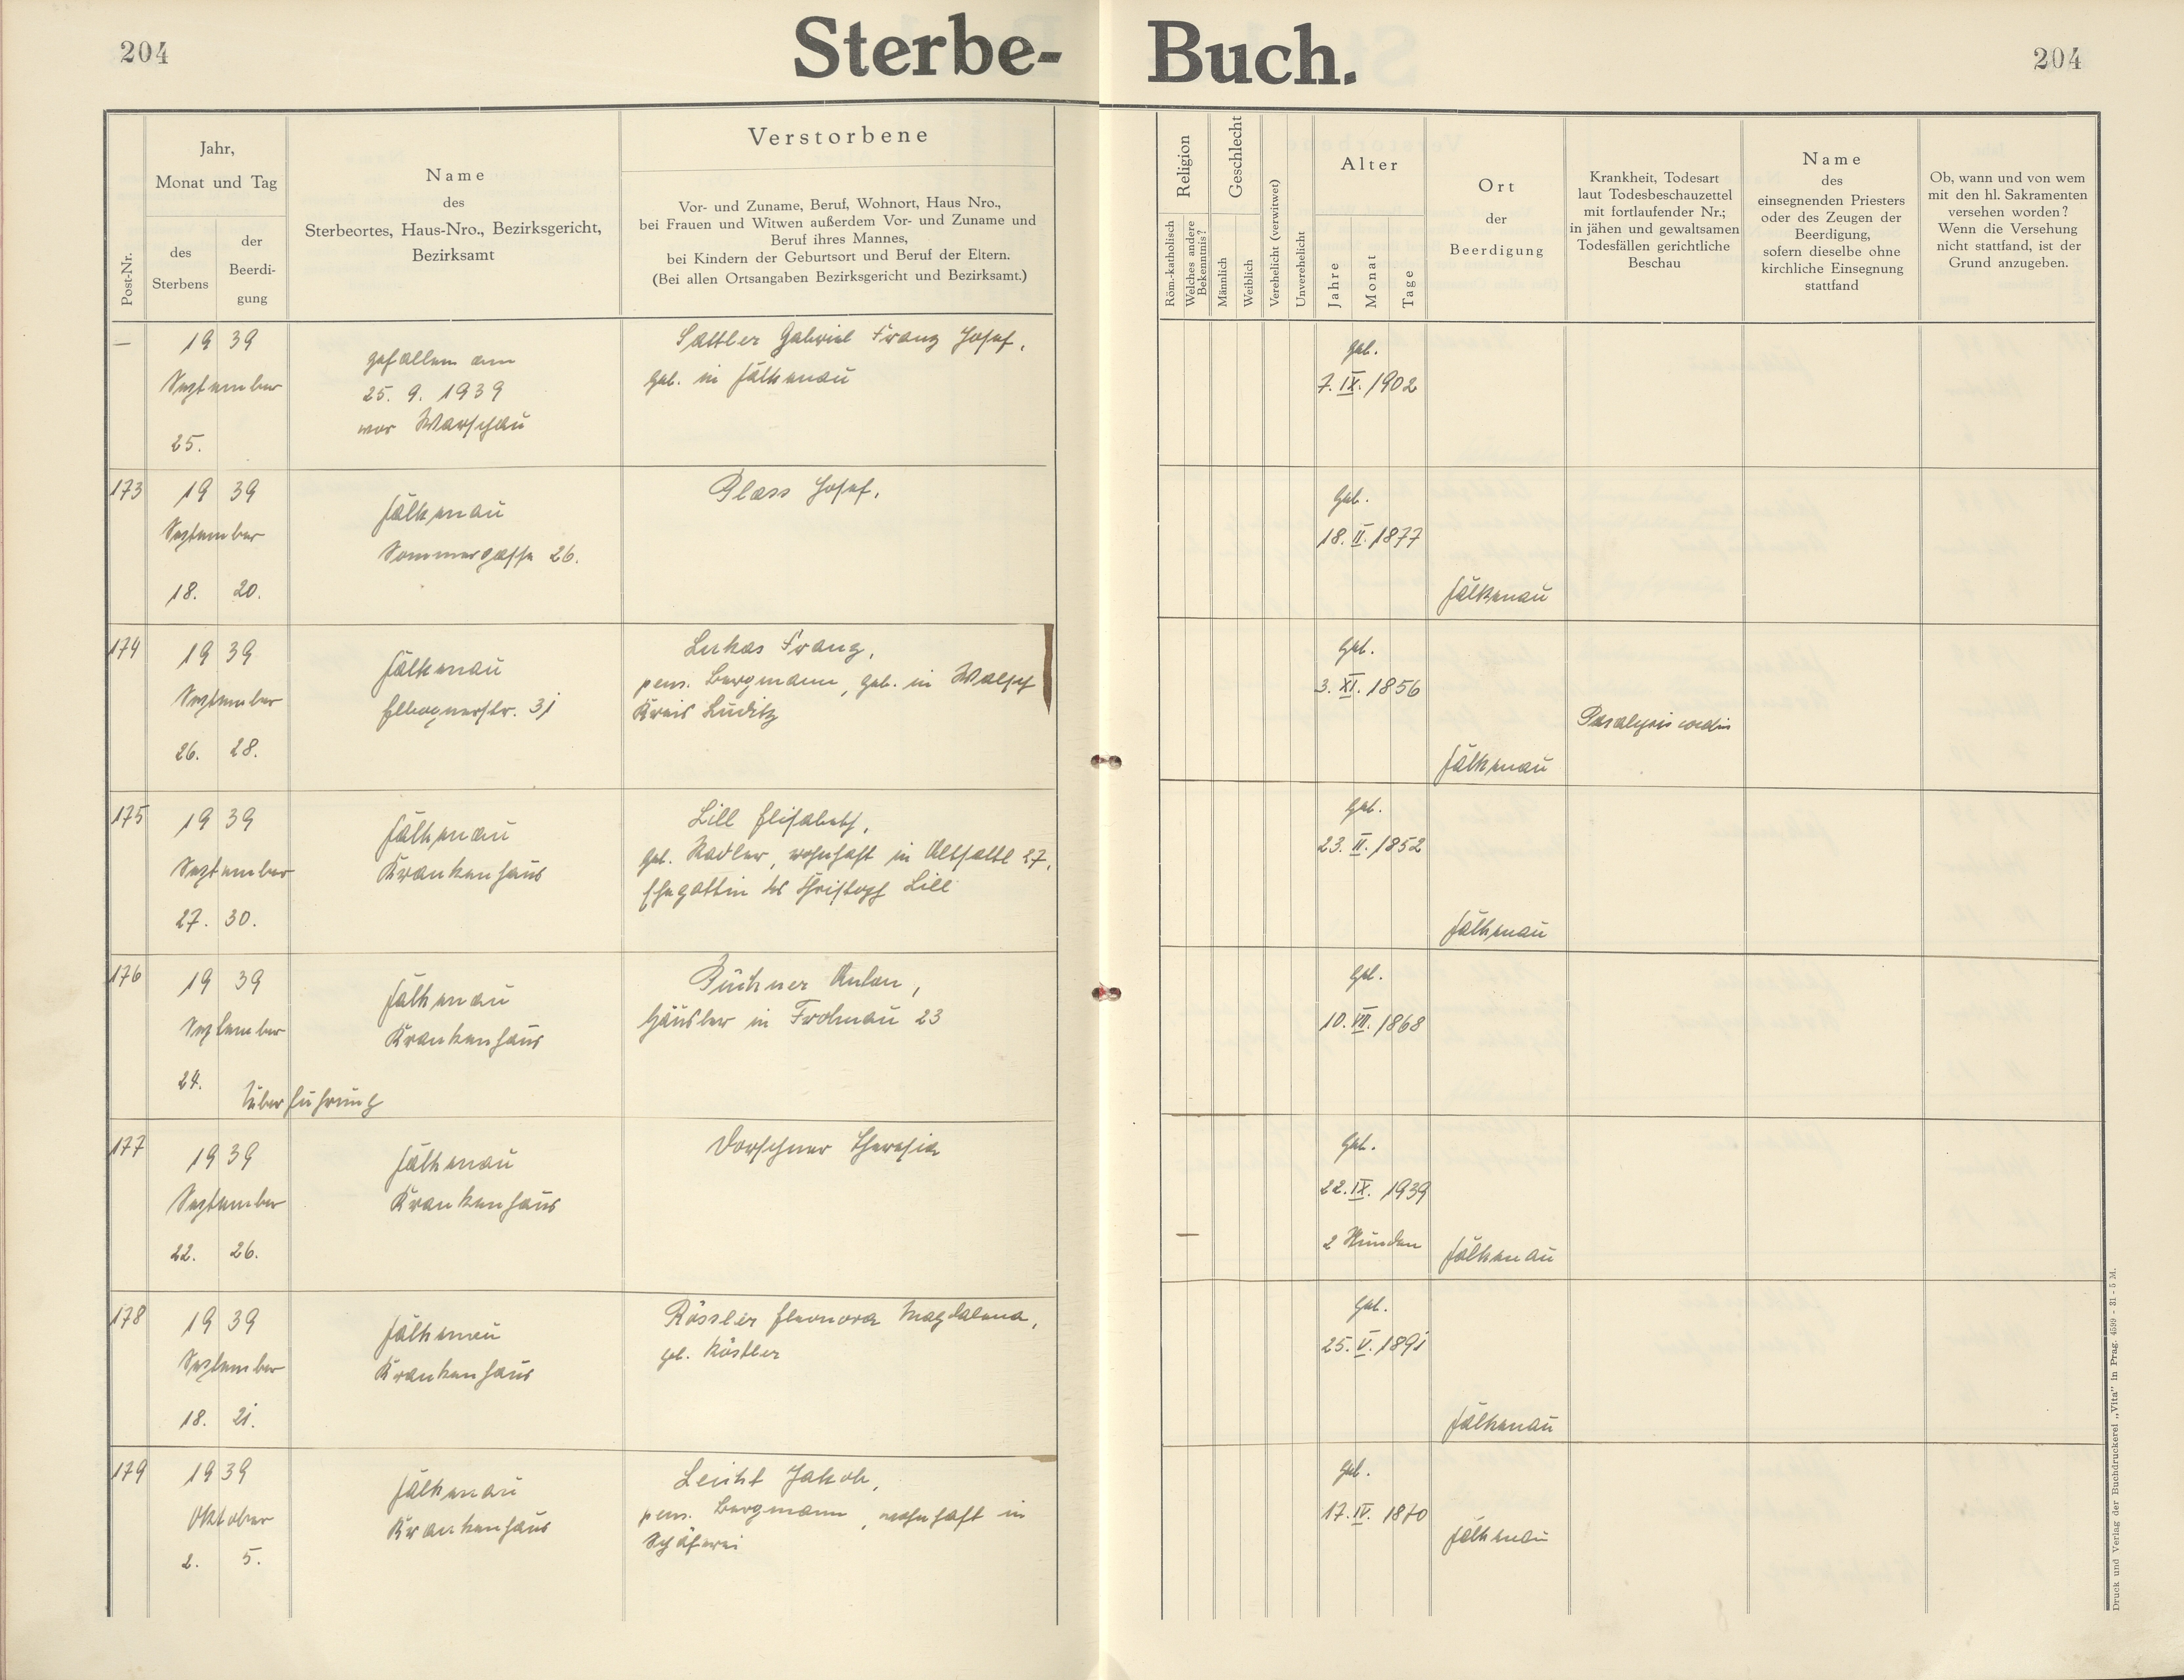 204
Sterbe-Buch.
204
Post-Nr.
Jahr,
Monat und Tag
des
Sterbens
der
Beerdi-
gung
Name
des
Sterbeortes, Haus-Nro., Bezirksgericht,
Bezirksamt
Verstorbene
Vor- und Zuname, Beruf, Wohnort, Haus Nro.,
bei Frauen und Witwen außerdem Vor- und Zuname und
Beruf ihres Mannes,
bei Kindern der Geburtsort und Beruf der Eltern.
(Bei allen Ortsangaben Bezirksgericht und Bezirksamt.)
Religion
Röm.-katholisch
Welches andere
Bekenntnis?
Geschlecht
Männlich
Weiblich
Verehelicht (verwitwet)
Unverehelicht
Alter
Jahre
Monat
Tage
Ort
der
Beerdigung
Krankheit, Todesart
laut Todesbeschauzettel
mit fortlaufender Nr.;
in jähen und gewaltsamen
Todesfällen gerichtliche
Beschau
Name
des
einsegnenden Priesters
oder des Zeugen der
Beerdigung,
sofern dieselbe ohne
kirchliche Einsegnung
stattfand
Ob, wann und von wem
mit den hl. Sakramenten
versehen worden?
Wenn die Versehung
nicht stattfand, ist der
Grund anzugeben.
—
19 39
September
25.
gefallen am
25. 9. 1939
vor Warschau
Sattler Gabriel Franz Josef,
geb. in Falkenau
Geb.
7. IX. 1902
173
19 39
September
18. 20.
Falkenau
Sommergasse 26.
Glass Josef,
Geb.
18. II. 1877
Falkenau
174
19 39
September
26. 28.
Falkenau
Elbognerstr. 31
Lukas Franz,
pens. Bergmann, geb. in Walsch
Kreis Luditz
Geb.
3. XI. 1856
Falkenau
Paralysis cordis
175
19 39
September
27. 30.
Falkenau
Krankenhaus
Lill Elisabeth,
geb. Nadler, wohnhaft in Altsattl 27,
Ehegattin des Christoph Lill
Geb.
23. II. 1852
Falkenau
176
19 39
September
24.
Überführung
Falkenau
Krankenhaus
Püchner Anton,
Häusler in Frohnau 23
Geb.
10. VII. 1868
177
19 39
September
22. 26.
Falkenau
Krankenhaus
Dorschner Theresia
—
Geb.
22. IX. 1939
2 Stunden
Falkenau
178
19 39
September
18. 21.
Falkenau
Krankenhaus
Rössler Eleonora Magdalena,
geb. Köstler
Geb.
25. V. 1891
Falkenau
179
19 39
Oktober
2. 5.
Falkenau
Krankenhaus
Leicht Jakob,
pens. Bergmann, wohnhaft in
Schäferei
Geb.
17. IV. 1870
Falkenau
Druck und Verlag der Buchdruckerei „Vita" in Prag. 4599 - 31 - 5 M.